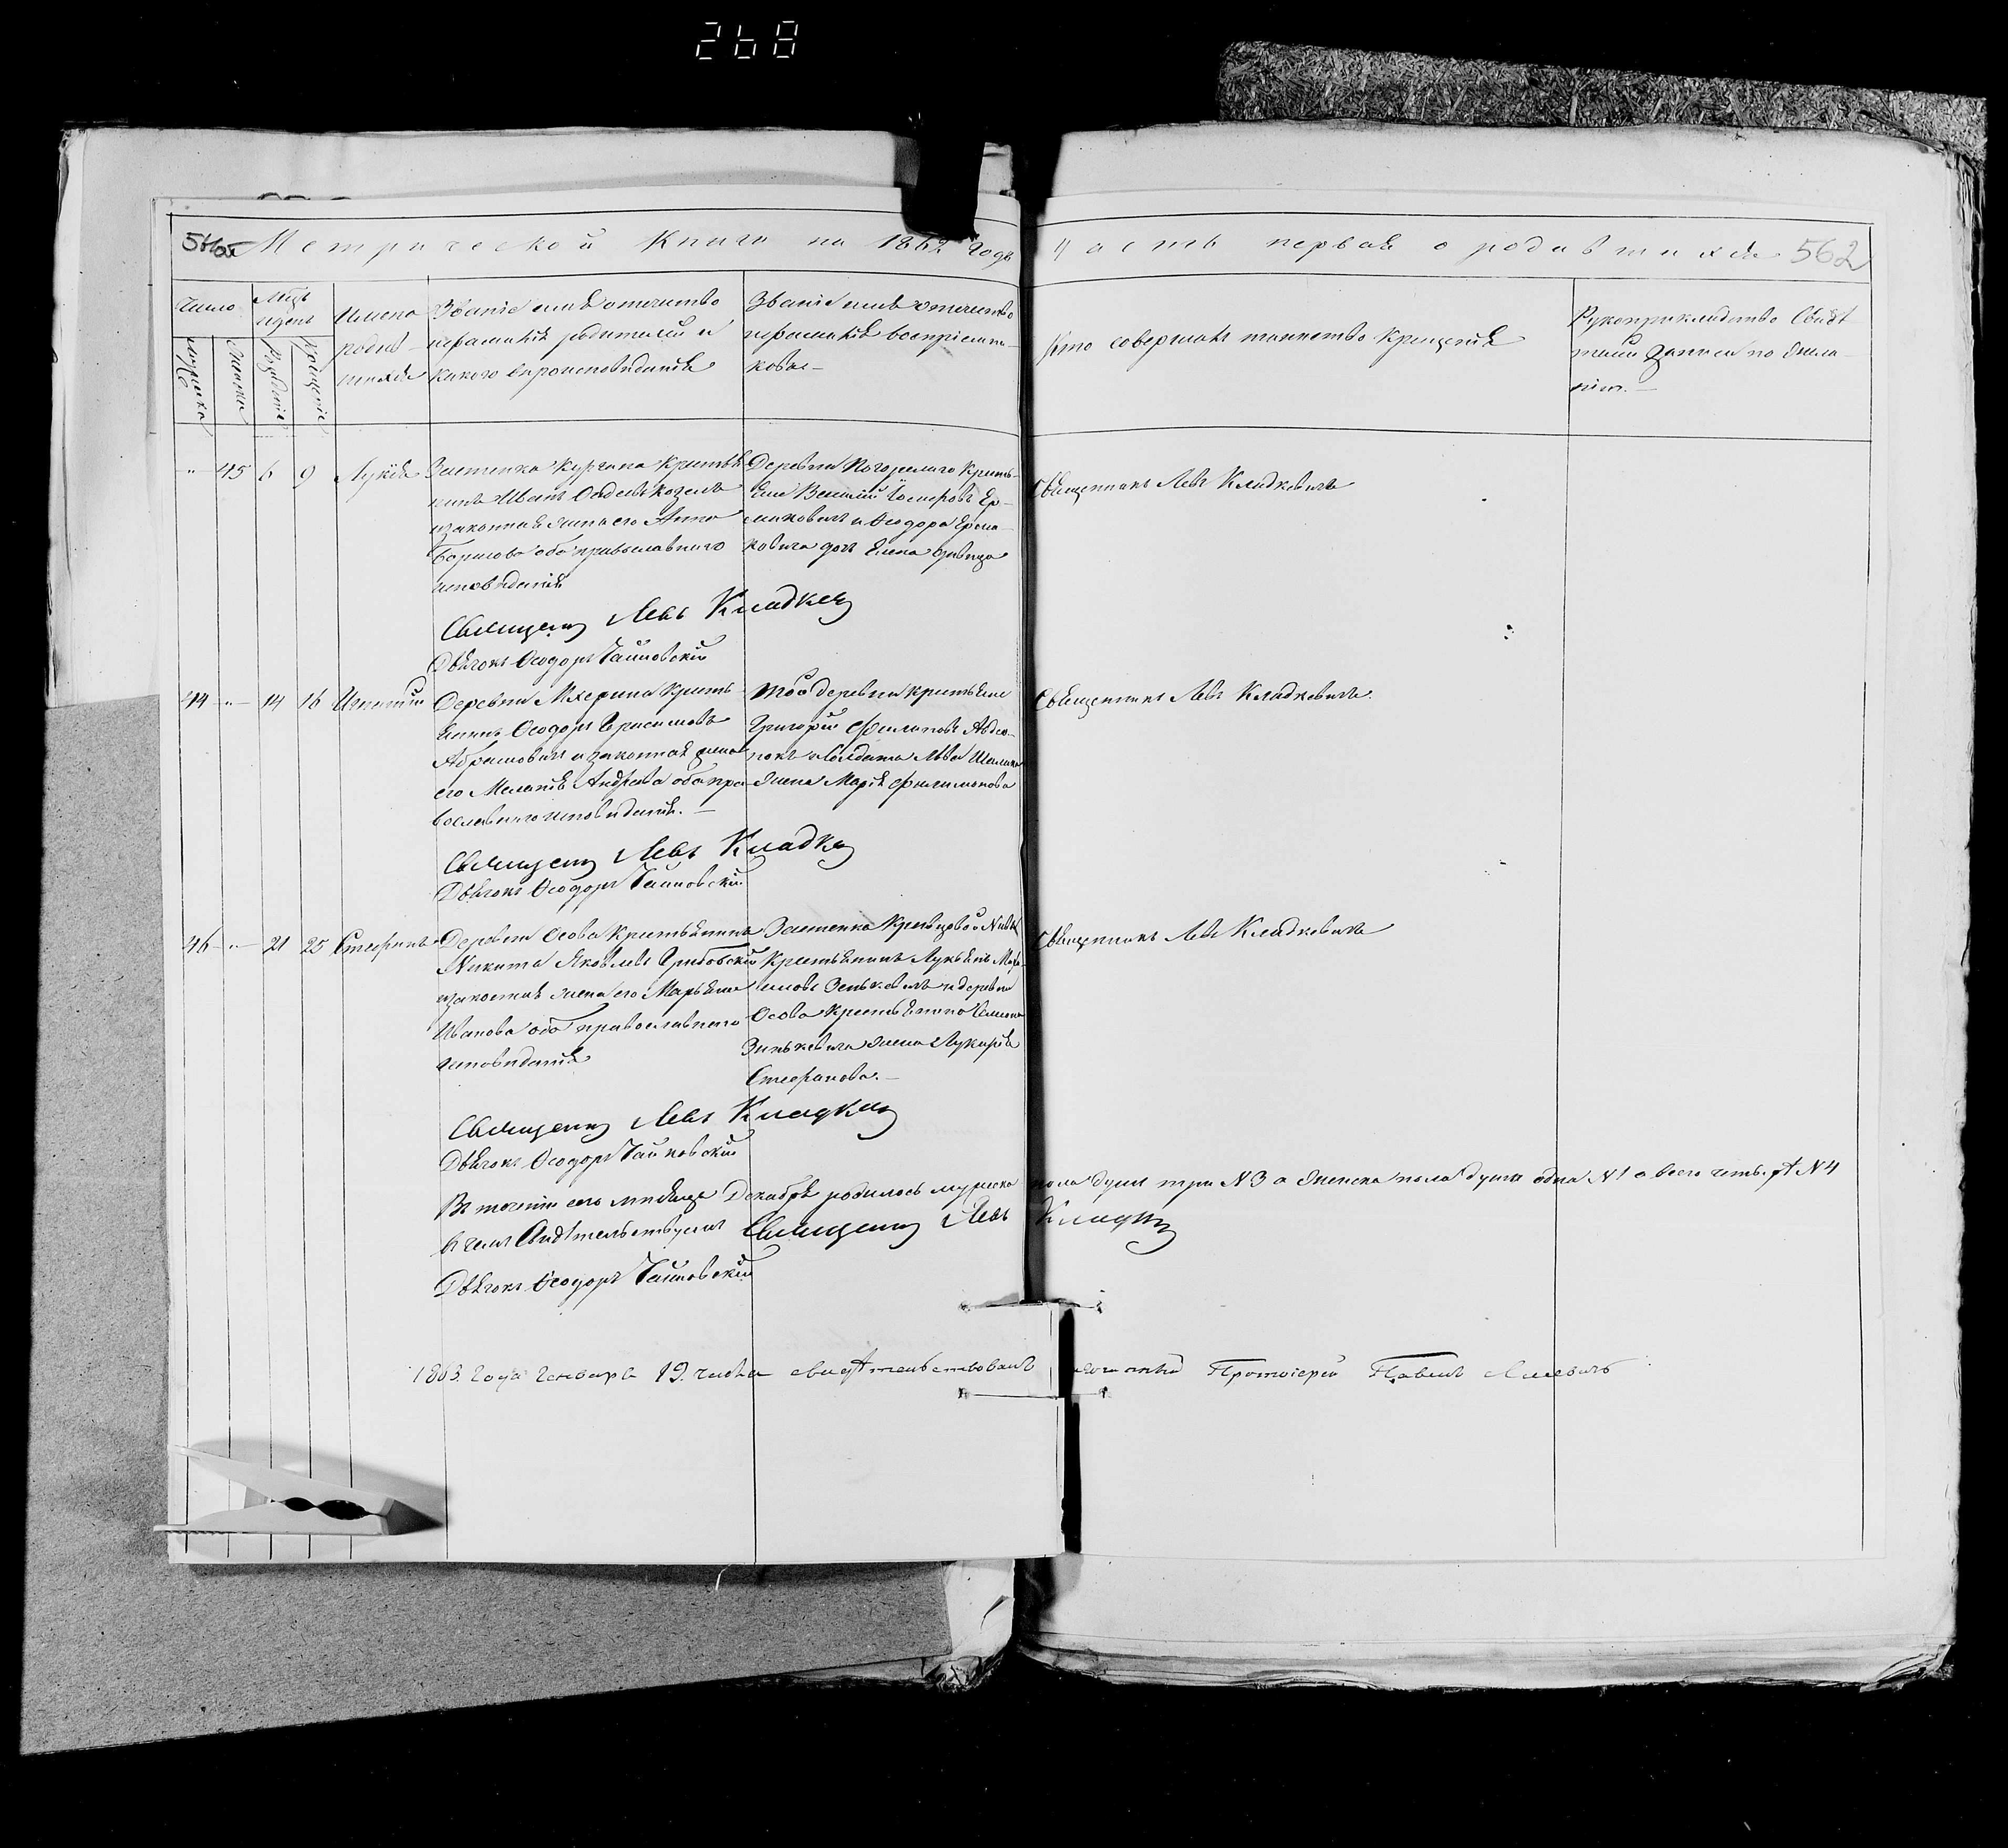 268
Метрической Книги на 1862 Годъ Часть первая о родившихся 562
Число
Мѣсяцъ
и день
Имена
родив-
шихся
Званіе имя отечество
и фамилія родителей и
какого вѣроисповѣданія
Званіе имя отечество
и фамилія воспріемни-
ковъ
Кто совершалъ таинство Крещенія
Рукоприкладство Свидѣ-
телей записи по жела-
нію.
Рожденія
Крещенія
45 6 9 Лукія
Застенка Кургана Крестья-
нинъ Иванъ Козелъ
и законная жена его Анна
Борисова оба православнаго
исповѣданія
Деревни Погорелаго Кресть-
яне Василій Ер-
маковичъ и Ѳеодора Ерма-
ковича дочь Елена девица
Священникъ Левъ Кладкевичъ
Священникъ Левъ Кладкевичъ
Дьячокъ Ѳеодоръ Чайновскій
44 14 16 Игнатій
Деревни Мхерина Кресть-
янинъ Ѳеодоръ Герасимовъ
Абрамовичъ и законная жена
его Меланія Андреева оба пра-
вославнаго исповѣданія.
Той деревни крестьяне
Григорій Филиповъ
жена Марія Филимонова
Священникъ Левъ Кладкевичъ.
Священникъ Левъ Кладкевичъ
Дьячокъ Ѳеодоръ Чайновскій
46 21 25 Стефанъ
Деревни Осова Крестьянинъ
Никита Яковлевъ Грибовскій
и законная жена его Марьяна
Иванова оба православнаго
исповѣданія
Застенка
Крестьянинъ Лукьянъ
Зенькевичъ и деревни
Осова Крестьянина
Зинькевича жена Лукерія
Стефанова.
Священникъ Левъ Кладкевичъ
Священникъ Левъ Кладкевичъ
Дьячокъ Ѳеодоръ Чайновскій
Въ теченіи сего месяца Декабря родилось мужеска пола душъ три N 3 а женска пола душа одна N 1 а всего N 4
въ чемъ Свидѣтельствуемъ Священникъ Левъ Кладкевичъ
Дьячокъ Ѳеодоръ Чайновскій
1863. Года Генваря 19. числа свидѣтельствовалъ Протоіерей Павелъ